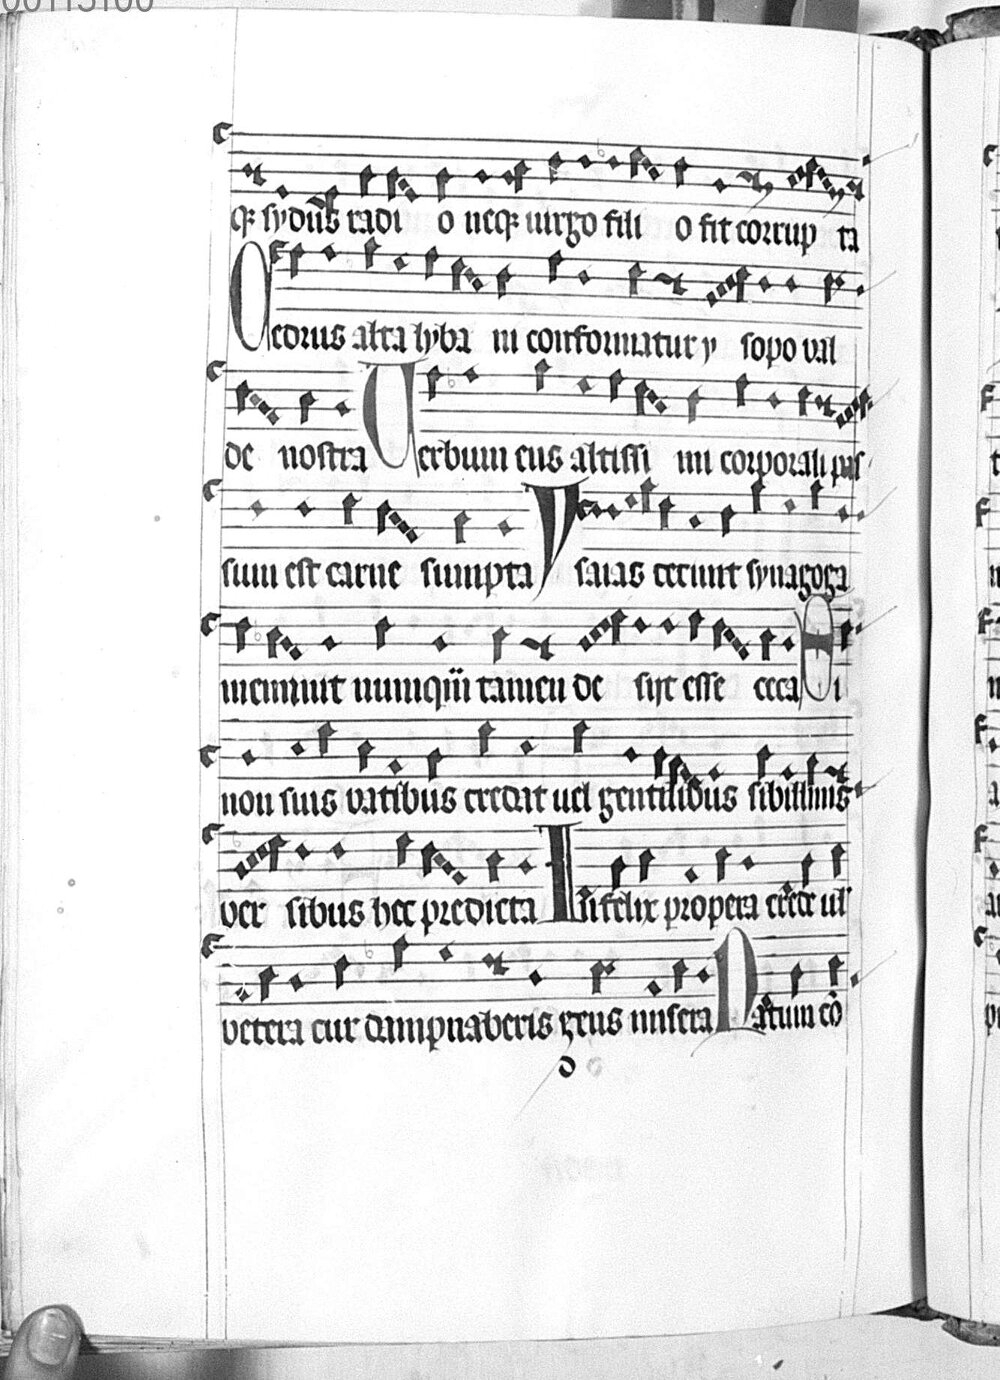 q3 sydus radi o neq3 uirgo fili o fit corrup ta
Cedrus alta lyba ni conformatur y sopo val
de nostra Uerbum ens altissi mi corporali pas
sum est carne sumpta Ysaias cecinit synagoga
meminit numquā tamen de sijt esse ceca Si
non suis vatibus credat uel gentilibus sibillinis
ver sibus hec predicta Infelix propera crede ul
vetera cur dampnaberis gens misera Natum cō